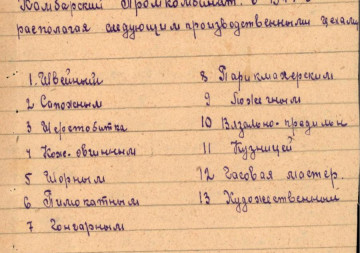 Камбарский Промкомбинат. в
располагая следующим производственными цехами
1. Швейный
2 Сапожным
3 Шерстобитка
4 Кож. овчинным
5 Шорным
6 Пимокатным
7 Гончарным
8 Парикмахерским
9 Кожечным
10 Вязально-прядильн
11 Кузницей
12 Часовая мастер.
13 Художественный